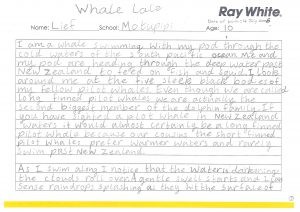 Whale Tale
Ray White.
Name: Lief School: Motupipi Age: 10
I am a whale swimming with my pod through the
cold waters of the south pacific ocean. Me and
my pod are heading through the deep water past
New Zealand to feed on fish and squid. I look
around me at the sleek black bodies of
my fellow pilot whales. Even though we are called
long finned pilot whales we are actually the
second biggest member of the dolphin family. If
you have sighted a pilot whale in New Zealand
waters it would almost certainly be a long finned
pilot whale because our cousins the short finned
pilot whales prefer warmer waters and rarely
swim past New Zealand.
As I swim along I notice that the water is darkening
the clouds roll over. A gentle swell starts and I
sense raindrops splashing as they hit the surface of